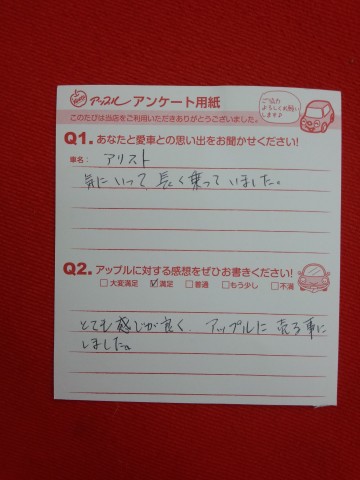 アップル アンケート用紙
このたびは当店をご利用いただきありがとうございました。
ご協力
よろしくお願い
します♪
Q1. あなたと愛車との思い出をお聞かせください!
車名: アリスト
気にいって、長く乗っていました。
Q2. アップルに対する感想をぜひお書きください!
□大変満足 ☑満足 □普通 □もう少し □不満
とても感じが良く、アップルに売る事に
しました。